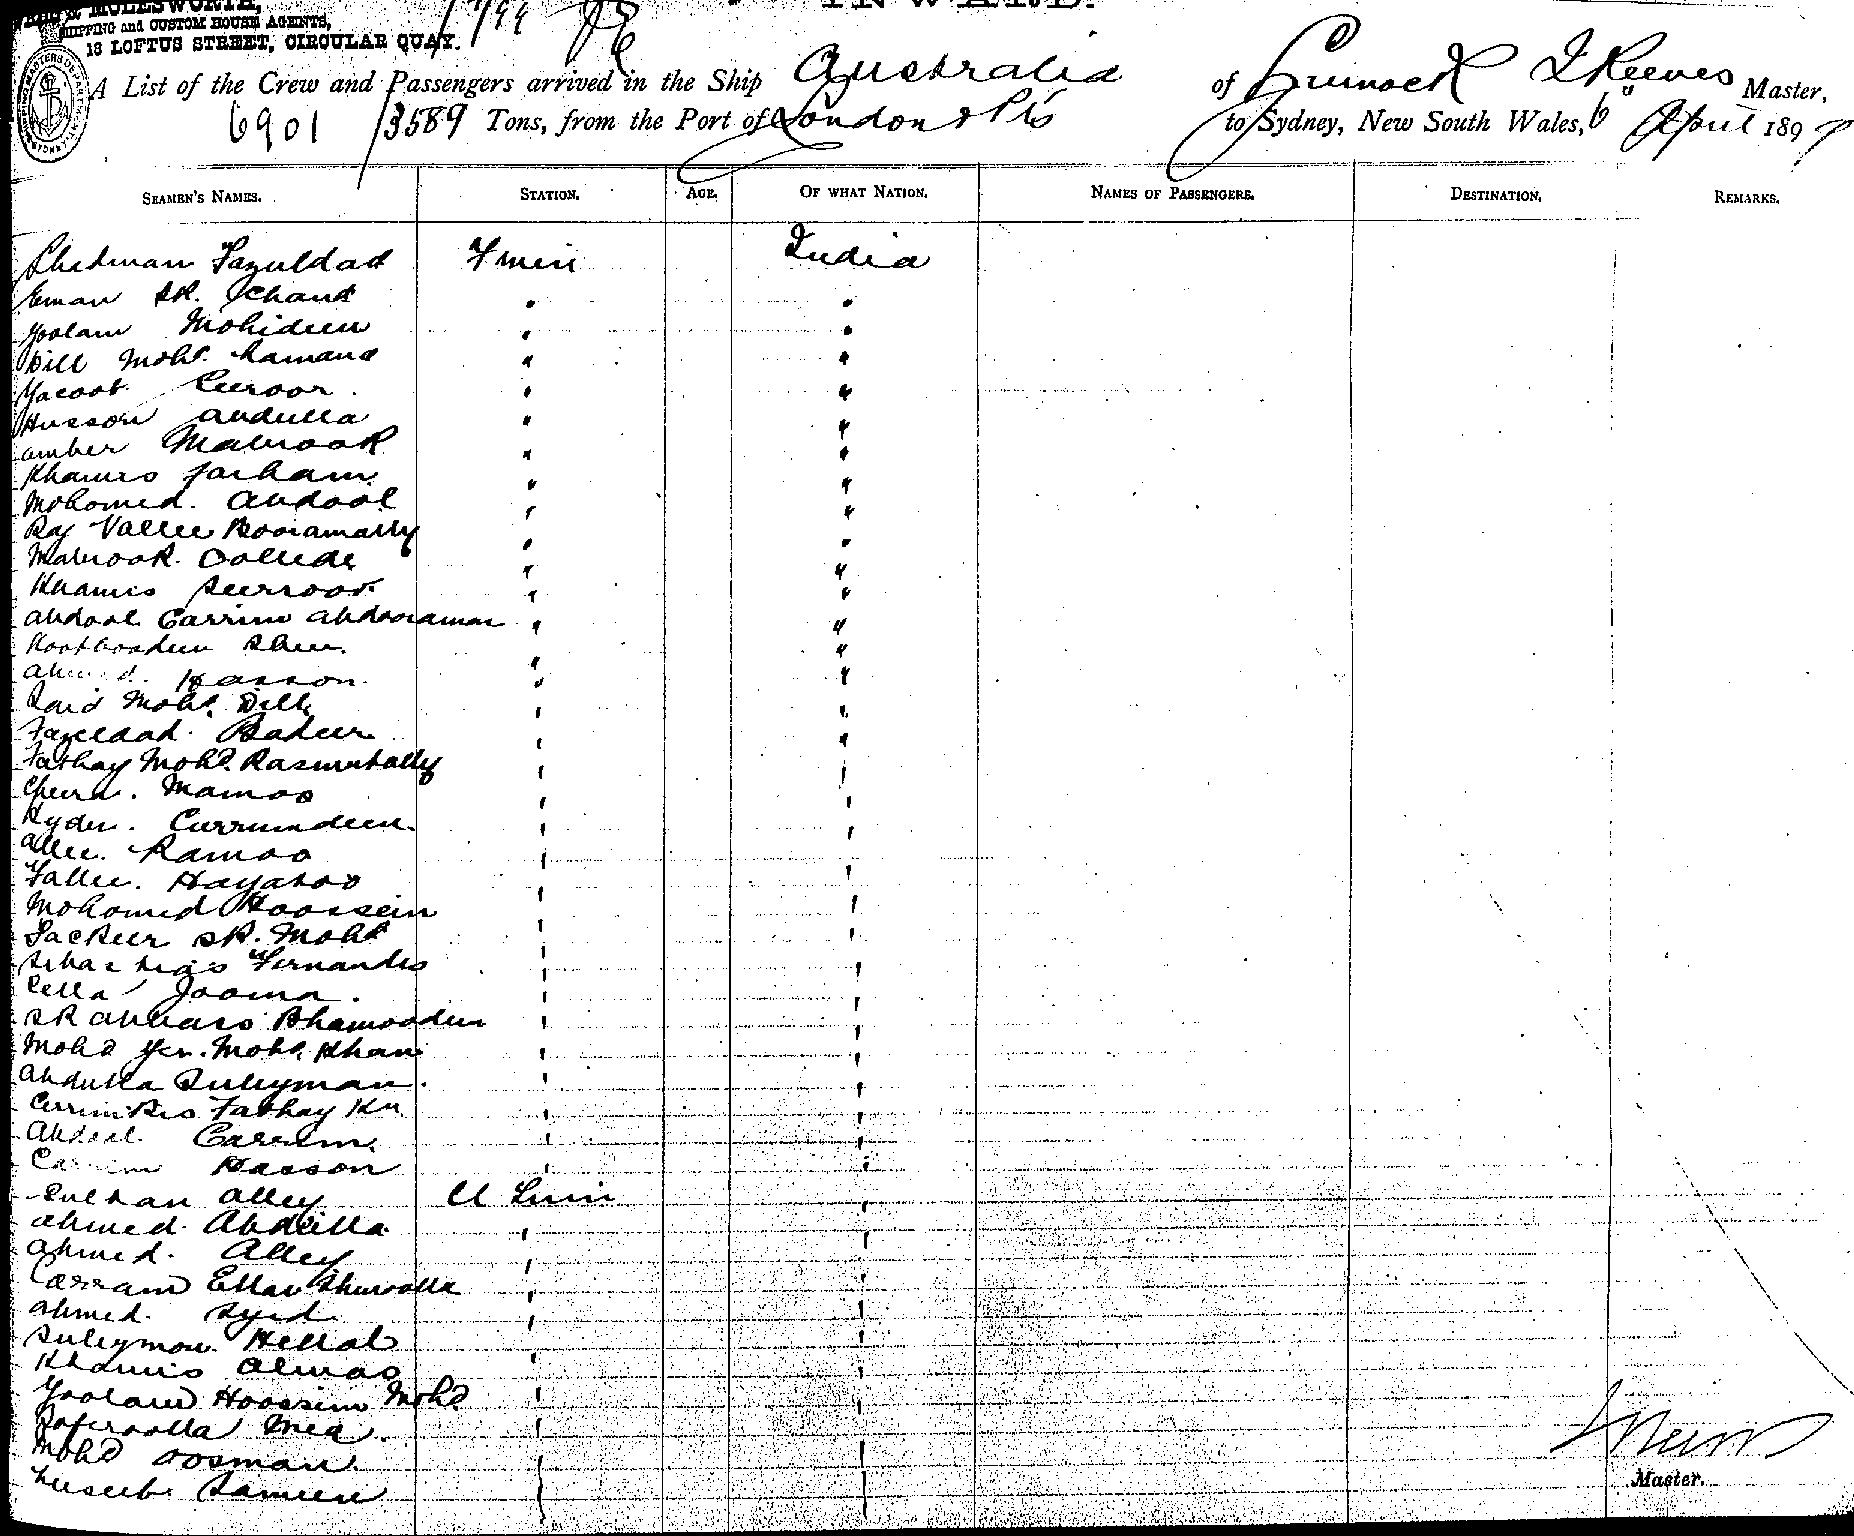 MOLESWORTH,
SHIPPING and CUSTOM HOUSE AGENTS,
13 LOFTUS STREET, CIRCULAR QUAY.
INWARD.
A List of the Crew and Passengers arrived in the Ship Australia of Greenock J Reeves Master,
6901 / 3589 Tons, from the Port of London & Pts to Sydney, New South Wales, 6 April 1897
SEAMEN'S NAMES. STATION. AGE. OF WHAT NATION. NAMES OF PASSENGERS. DESTINATION. REMARKS.
Shadman Fazuldad Fmen India
Eman Sk. Chand " "
Goolam Mohideen " "
Dill Mohd. Ramand " "
Yacoob Suroor " "
Husson Abdulla " "
Amber Mabrook " "
Khamis Farham " "
Mohomed. Abdool " "
Raj Vallee Booramally " "
Mabrook. " "
Khamis Surroor " "
Abdool Carrim Abdooraman " "
Kootboodeen Sher. " "
Ahmed. Hasson " "
Said Mohd. Dill " "
Fazeldad. Badur " "
Fathay Mohd. Rasmutally " "
Mamoo " "
Hyder. Currumdeen. " "
Allee. Ramoo " "
Fallee. Hayatoo " "
Mohomed Hoossein " "
Sackeer Sk. Mohd " "
Sebastiao Fernandes " "
Cella Jooma. " "
Sk Abbas Bhamoodeen " "
Mohd Yer. Mohd. Khan " "
Abdulla Suleyman. " "
Fathay Kn " "
Abdool. Carrim. " "
Carrim Hasson " "
Sultan Alley "
Ahmed. Abdulla " "
Ahmed. Alley " "
Carram Ellav " "
Ahmed. Syed " "
Suleyman. Hellal " "
Khamis Almas " "
Goolam Hoossein Mohd " "
Mea. " "
Mohd Oosman. " "
Sameer " "
J Reeves
Master.